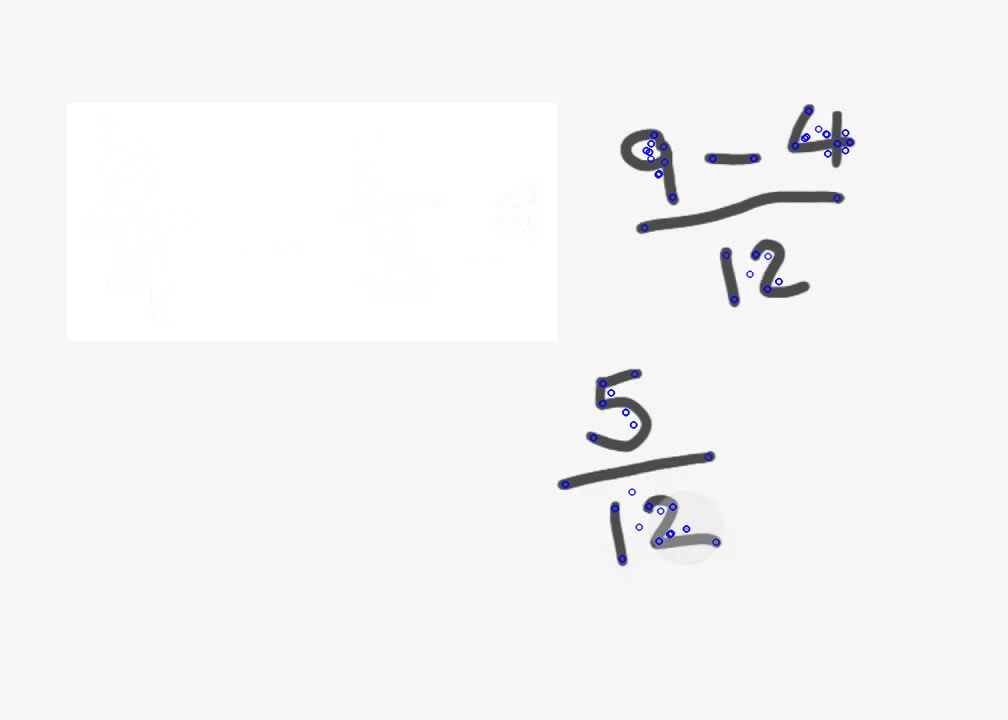 9 - 4
12
5
12